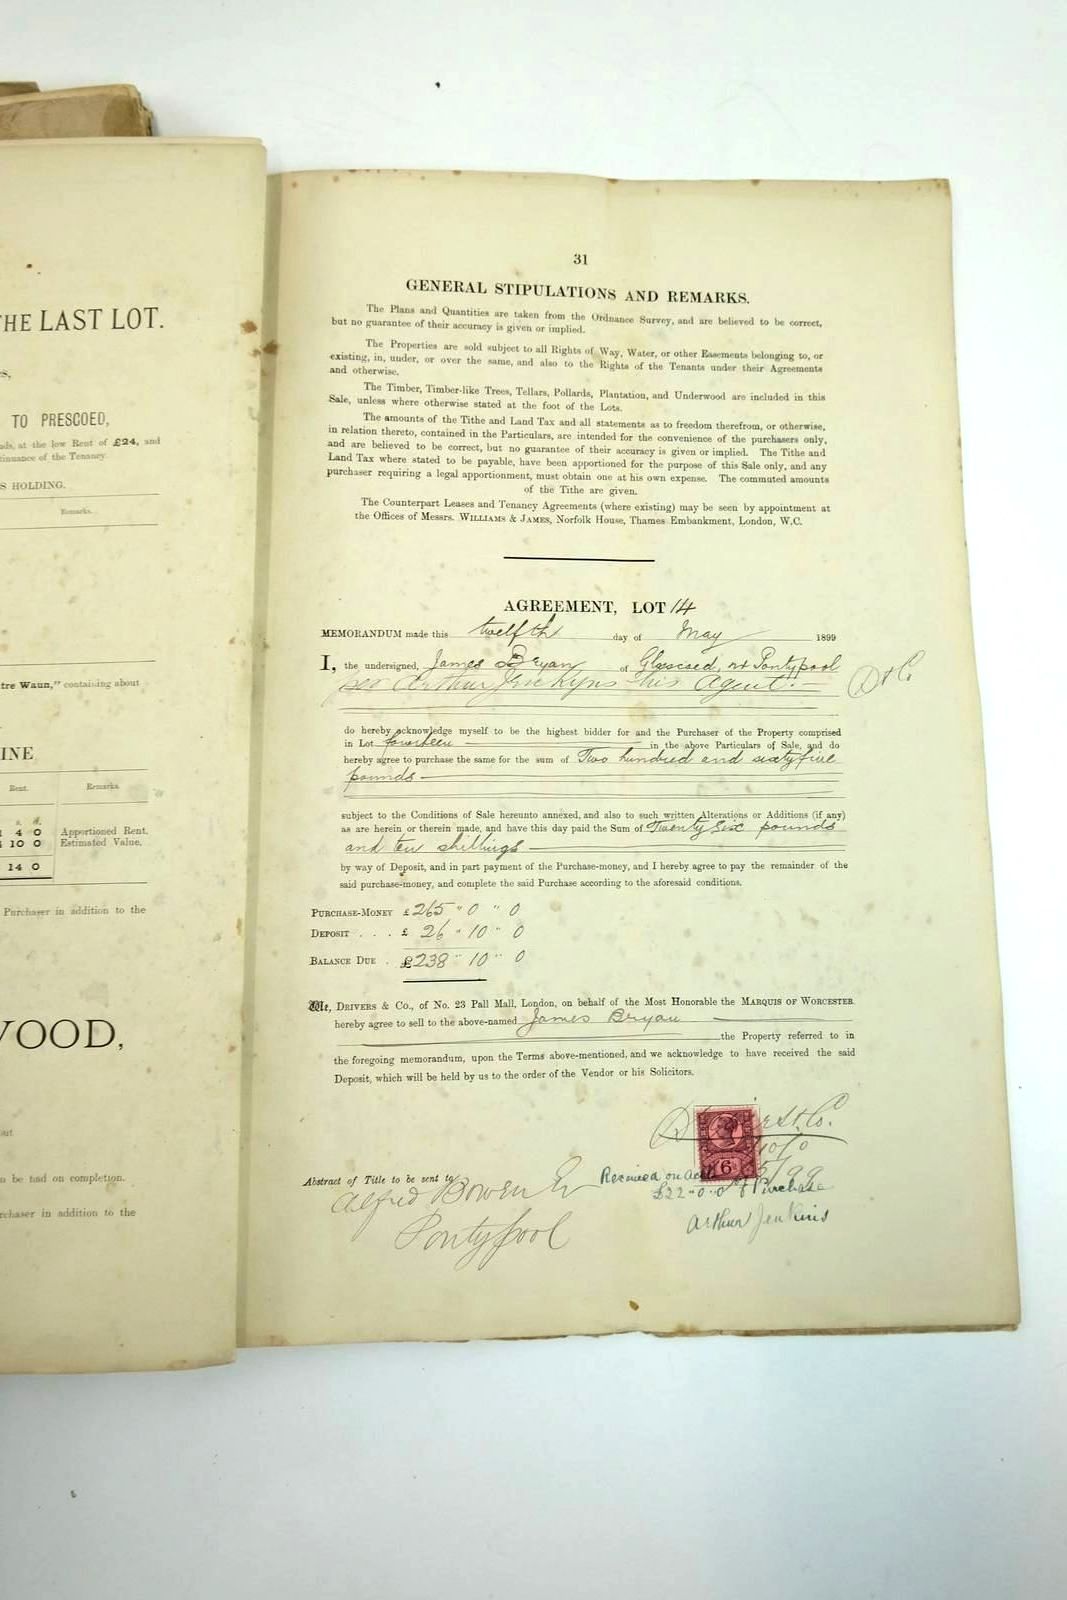 THE LAST LOT.
TO PRESCOED,
at the low Rent of £24, and
tinuance of the Tenancy.
S HOLDING.
Remarks.
tre Waun," containing about
INE
Rent.
Remarks.
s. d.
1 4 0
Apportioned Rent.
10 0
Estimated Value.
14 0
Purchaser in addition to the
WOOD,
out
n be had on completion.
rchaser in addition to the
31
GENERAL STIPULATIONS AND REMARKS.
The Plans and Quantities are taken from the Ordnance Survey, and are believed to be correct,
but no guarantee of their accuracy is given or implied.
The Properties are sold subject to all Rights of Way, Water, or other Easements belonging to, or
existing, in, under, or over the same, and also to the Rights of the Tenants under their Agreements
and otherwise.
The Timber, Timber-like Trees, Tellars, Pollards, Plantation, and Underwood are included in this
Sale, unless where otherwise stated at the foot of the Lots.
The amounts of the Tithe and Land Tax and all statements as to freedom therefrom, or otherwise,
in relation thereto, contained in the Particulars, are intended for the convenience of the purchasers only,
and are believed to be correct, but no guarantee of their accuracy is given or implied. The Tithe and
Land Tax where stated to be payable, have been apportioned for the purpose of this Sale only, and any
purchaser requiring a legal apportionment, must obtain one at his own expense. The commuted amounts
of the Tithe are given.
The Counterpart Leases and Tenancy Agreements (where existing) may be seen by appointment at
the Offices of Messrs. WILLIAMS & JAMES, Norfolk House, Thames Embankment, London, W.C.
AGREEMENT, LOT 14
MEMORANDUM made this twelfth day of May 1899
I, the undersigned, James Bryan of Glascoed, nr Pontypool
per Arthur Jenkyns his Agent
D & C
do hereby acknowledge myself to be the highest bidder for and the Purchaser of the Property comprised
in Lot fourteen in the above Particulars of Sale, and do
hereby agree to purchase the same for the sum of Two hundred and sixty five
pounds
subject to the Conditions of Sale hereunto annexed, and also to such written Alterations or Additions (if any)
as are herein or therein made, and have this day paid the Sum of Twenty Six pounds
and ten shillings
by way of Deposit, and in part payment of the Purchase-money, and I hereby agree to pay the remainder of the
said purchase-money, and complete the said Purchase according to the aforesaid conditions.
PURCHASE-MONEY £265 " 0 " 0
DEPOSIT . . . £ 26 " 10 " 0
BALANCE DUE . £238 " 10 " 0
We, DRIVERS & Co., of No. 23 Pall Mall, London, on behalf of the Most Honorable the MARQUIS OF WORCESTER
hereby agree to sell to the above-named James Bryan
the Property referred to in
the foregoing memorandum, upon the Terms above-mentioned, and we acknowledge to have received the said
Deposit, which will be held by us to the order of the Vendor or his Solicitors.
6
Abstract of Title to be sent to
Alfred Bowen Er
Pontypool
Received on acct
£22-0-0 of Purchase
Arthur Jenkins